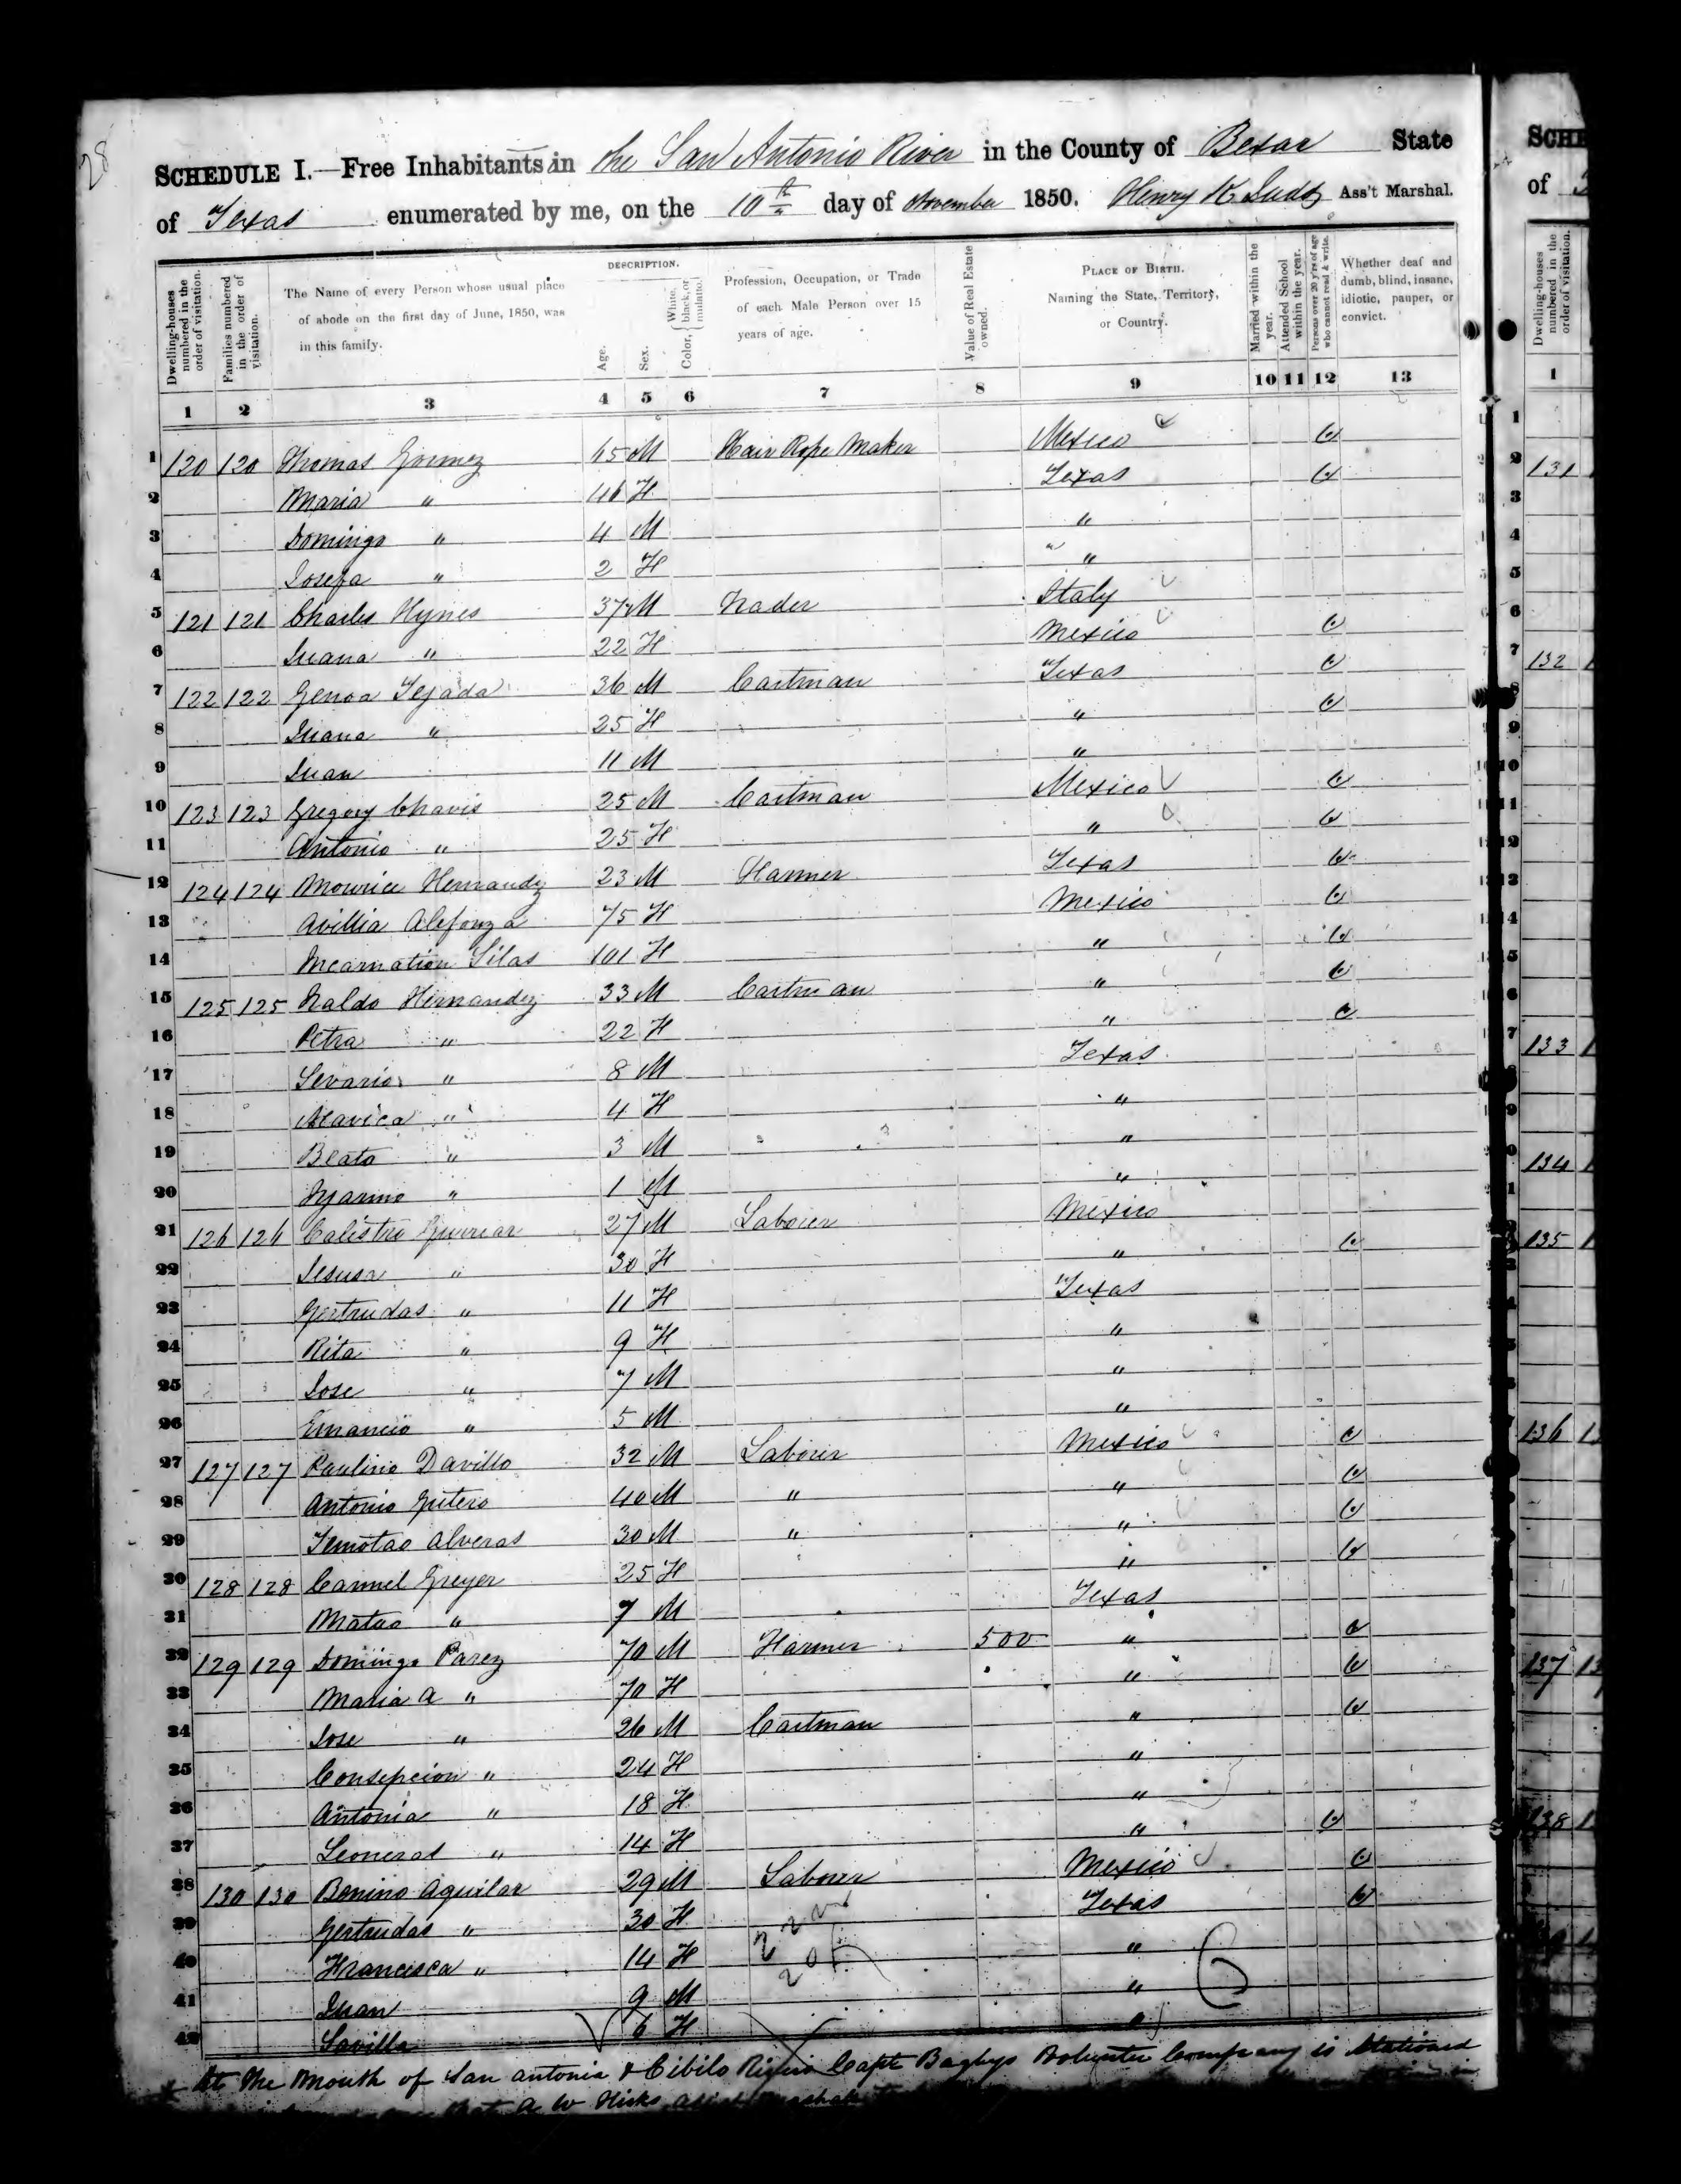 28
SCHEDULE I.—Free Inhabitants in the San Antonio River in the County of Bexar State
of Texas enumerated by me, on the 10th day of November 1850. Henry K Ass't Marshal.
Dwelling-houses numbered in the order of visitation.
Families numbered in the order of visitation.
The Name of every Person whose usual place of abode on the first day of June, 1850, was in this family.
DESCRIPTION.
Age.
Sex.
Color, { White, black, or mulatto.
Profession, Occupation, or Trade of each Male Person over 15 years of age.
Value of Real Estate owned.
PLACE OF BIRTH. Naming the State, Territory, or Country.
Married within the year.
Attended School within the year.
Persons over 20 y'rs of age who cannot read & write.
Whether deaf and dumb, blind, insane, idiotic, pauper, or convict.
1 2 3 4 5 6 7 8 9 10 11 12 13
1 120 120 Thomas Gomez 65 M Hair Rope Maker Mexico
2 Maria " 46 F Texas
3 Domingo " 4 M "
4 Josefa " 2 F "
5 121 121 Charles Hynes 37 M Trader Italy
6 Juana " 22 F Mexico
7 122 122 Genoa Tejada 36 M Cartman Texas
8 Juana " 25 F "
9 Juan 11 M "
10 123 123 Gregory Chavis 25 M Cartman Mexico
11 Antonio " 25 F "
12 124 124 Mowrice Hernandz 23 M Farmer Texas
13 Avillia Alefonza 75 F Mexico
14 Incarnation Silas 101 F "
15 125 125 Naldo Hernandez 33 M Cartman "
16 Petra " 22 F "
17 Sevario " 8 M Texas
18 " 4 F "
19 Beato " 3 M "
20 " 1 M "
21 126 126 Calistro 27 M Laborer Mexico
22 Jesusa " 30 F "
23 Gertrudas " 11 F Texas
24 Rita " 9 F "
25 Jose " 7 M "
26 Emancio " 5 M "
27 127 127 Paulino Davillo 32 M Laborer Mexico
28 Antonio 40 M " "
29 Temotao Alveras 30 M " "
30 128 128 Carmel Greyer 25 F "
31 Matao " 7 M Texas
32 129 129 Domingo Parez 70 M Farmer 500 "
33 Maria A " 70 F "
34 Jose " 26 M Cartman "
35 Consepcion " 24 F "
36 Antonia " 18 F "
37 " 14 F "
38 130 130 Benino Aguilar 29 M Laborer Mexico
39 Gertrudas " 30 F Texas
40 Francisca " 14 F "
41 Juan 9 M "
42 Savilla 6 F "
At the Mouth of San Antonio & Cibilo Capt Bagbys Company is Stationed
that A W Hicks
SCHE
of
Dwelling-houses numbered in the order of visitation.
1
131
132
133
134
135
136
137
138